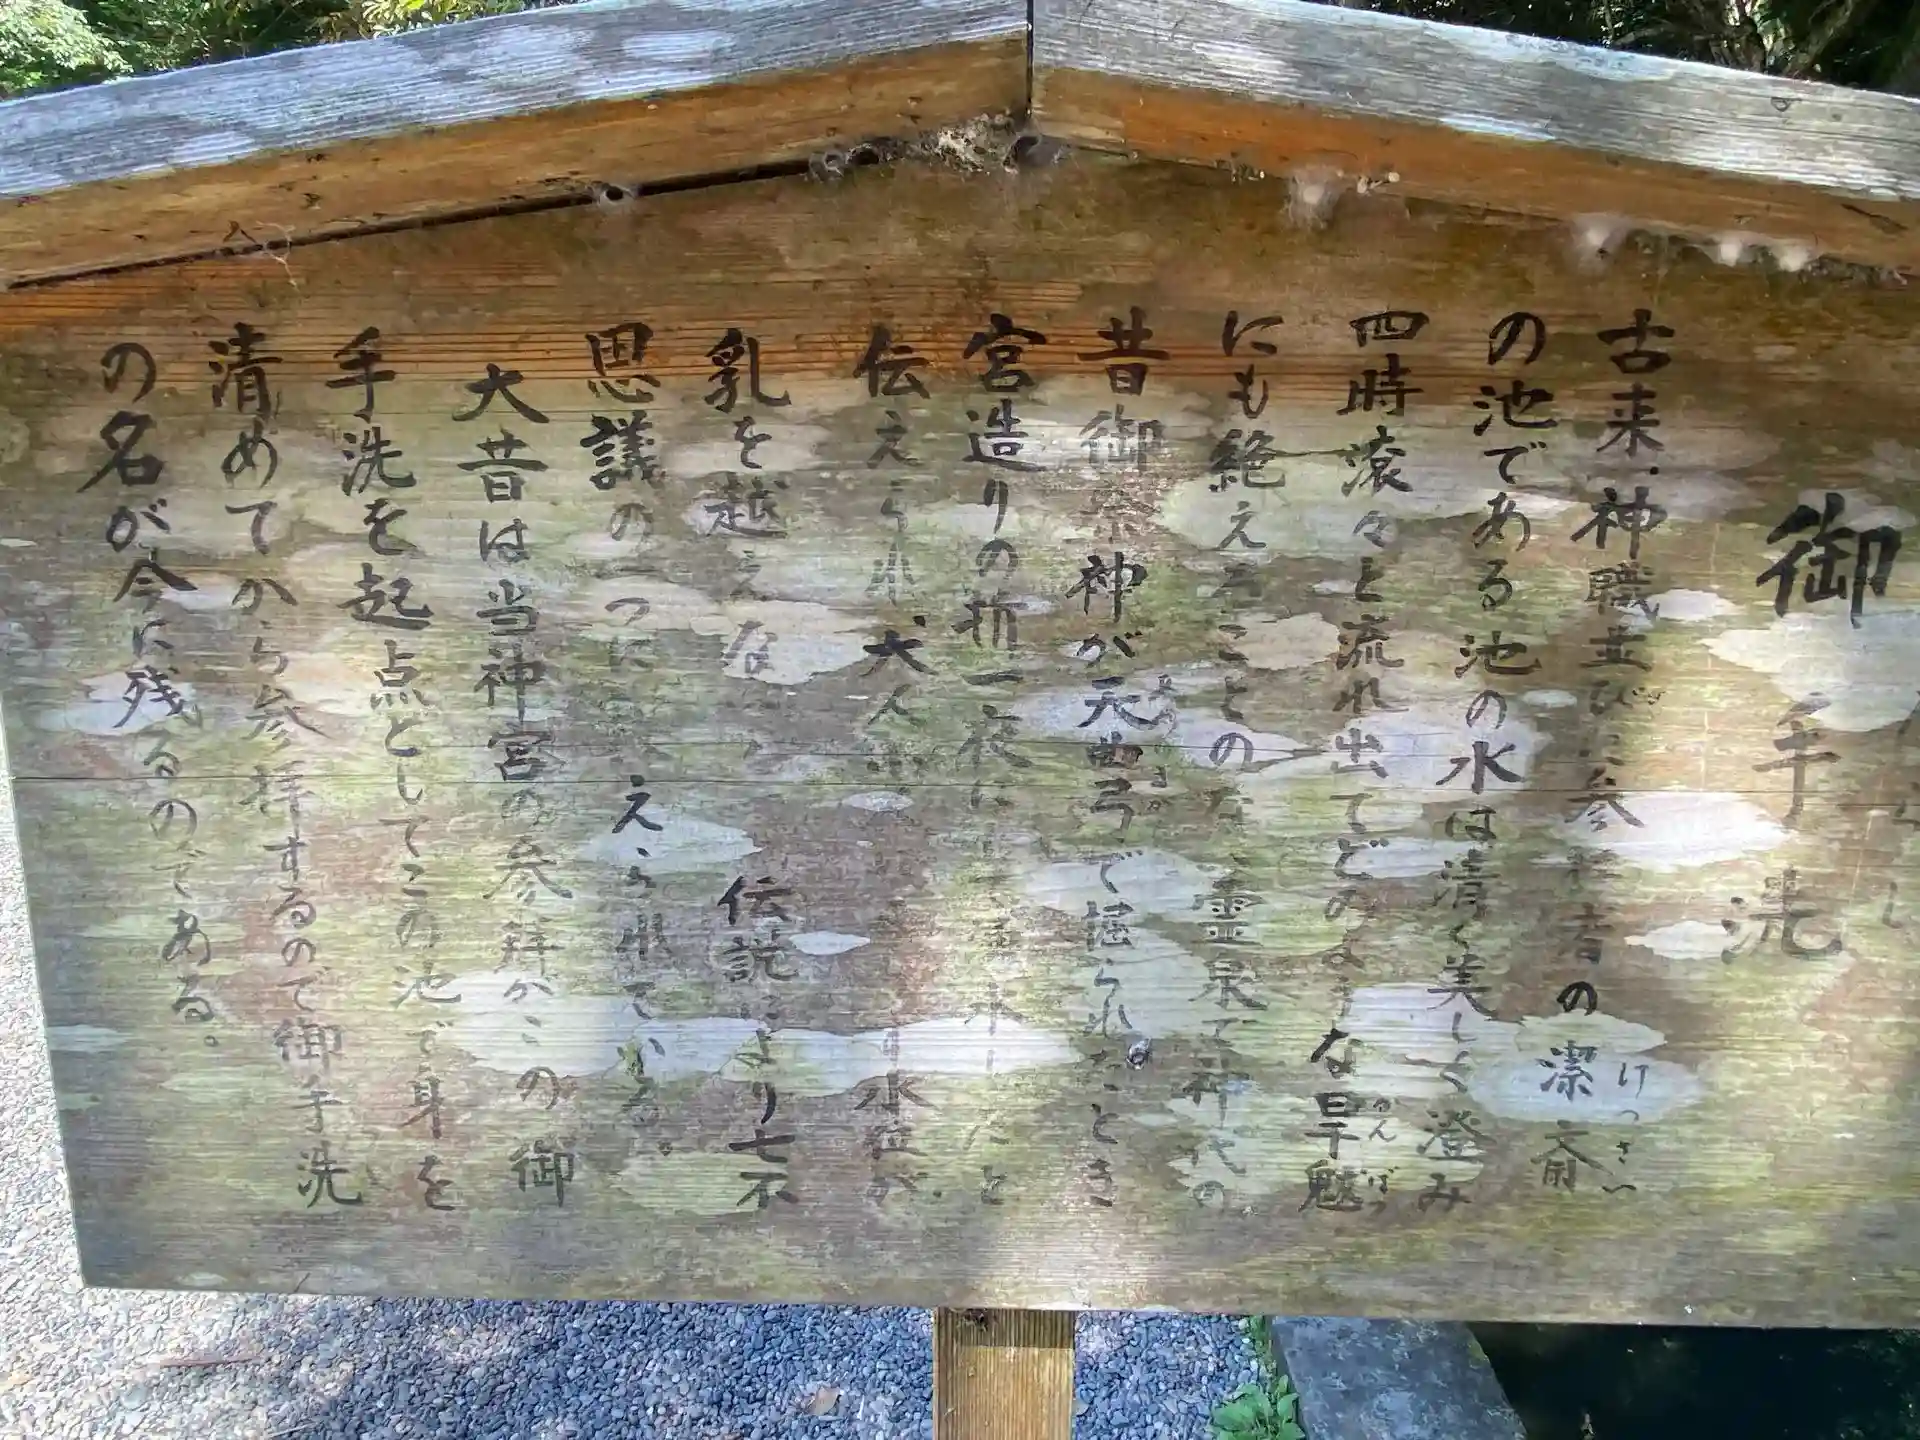 御手洗
古来、神職並びに参 者の潔斎
の池である池の水は清く美しく澄み
四時滾々と流れ出てどのような旱魃
にも絶えることの な 霊泉で神代の
昔御祭神が天曲弓で掘られたとき
宮造りの折一夜に 水したと
伝えられ、大人小 水位が
乳を越えな 伝説により七不
思議の一つに えられている。
大昔は当神宮の参拝がこの御
手洗を起点としてこの池で身を
清めてから参拝するので御手洗
の名が今に残るのである。